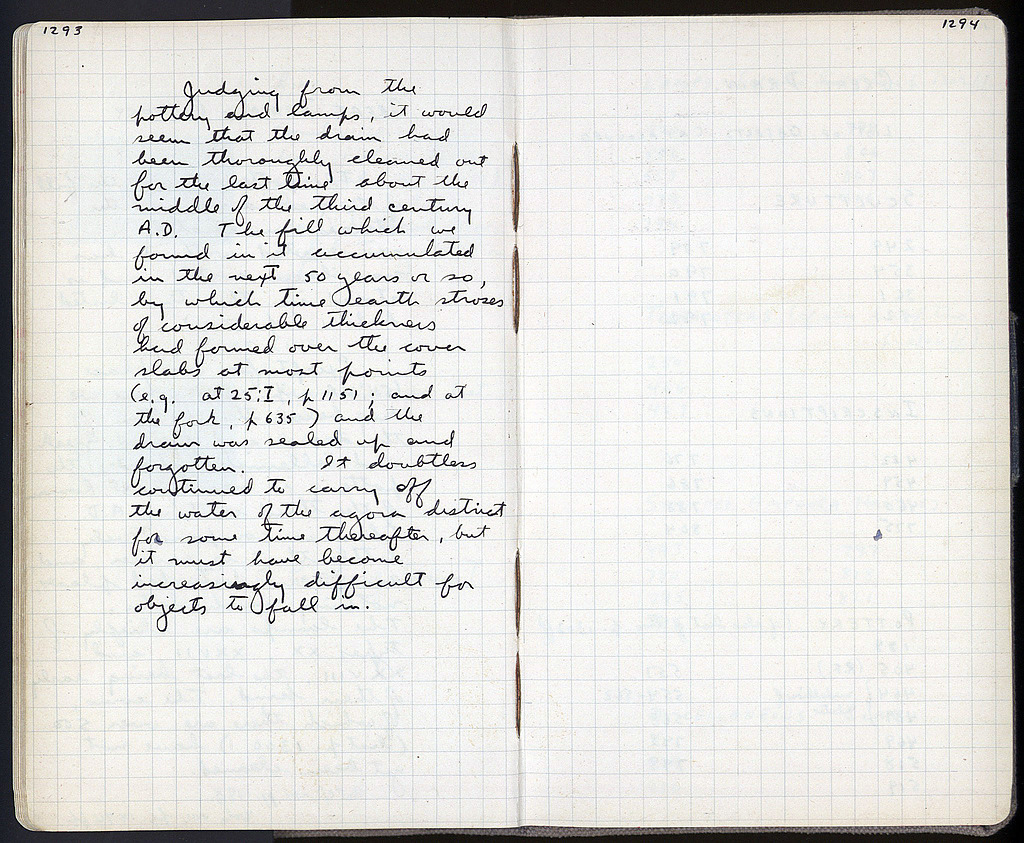 1293
Judging from the
pottery and lamps, it would
seem that the drain had
been thoroughly cleaned out
for the last time about the
middle of the third century
A.D. The fill which we
found in it accumulated
in the next 50 years or so,
by which time earth stroses
of considerable thickness
had formed over the cover
slabs at most points
(e.g. at 25:I, p 1151; and at
the fork, p 635) and the
drain was sealed up and
forgotten. It doubtless
continued to carry off
the water of the agora district
for some time thereafter, but
it must have become
increasingly difficult for
objects to fall in.
1294